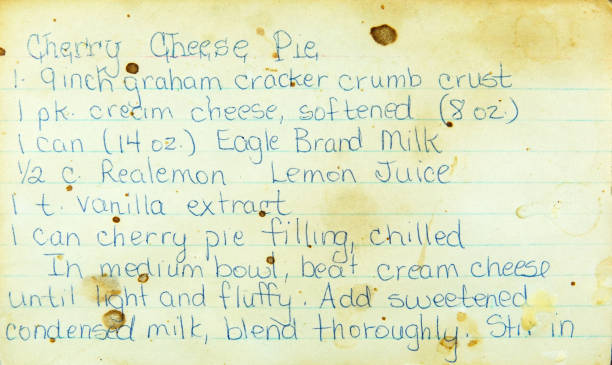 Cherry Cheese Pie
1. 9inch graham cracker crumb crust
1 pk. cream cheese, softened (8 oz.)
1 can (14 oz.) Eagle Brand Milk
1/2 c. Realemon Lemon Juice
1 t. vanilla extract
1 can cherry pie filling, chilled
In medium bowl, beat cream cheese
until light and fluffy. Add sweetened
condensed milk, blend thoroughly. Stir in